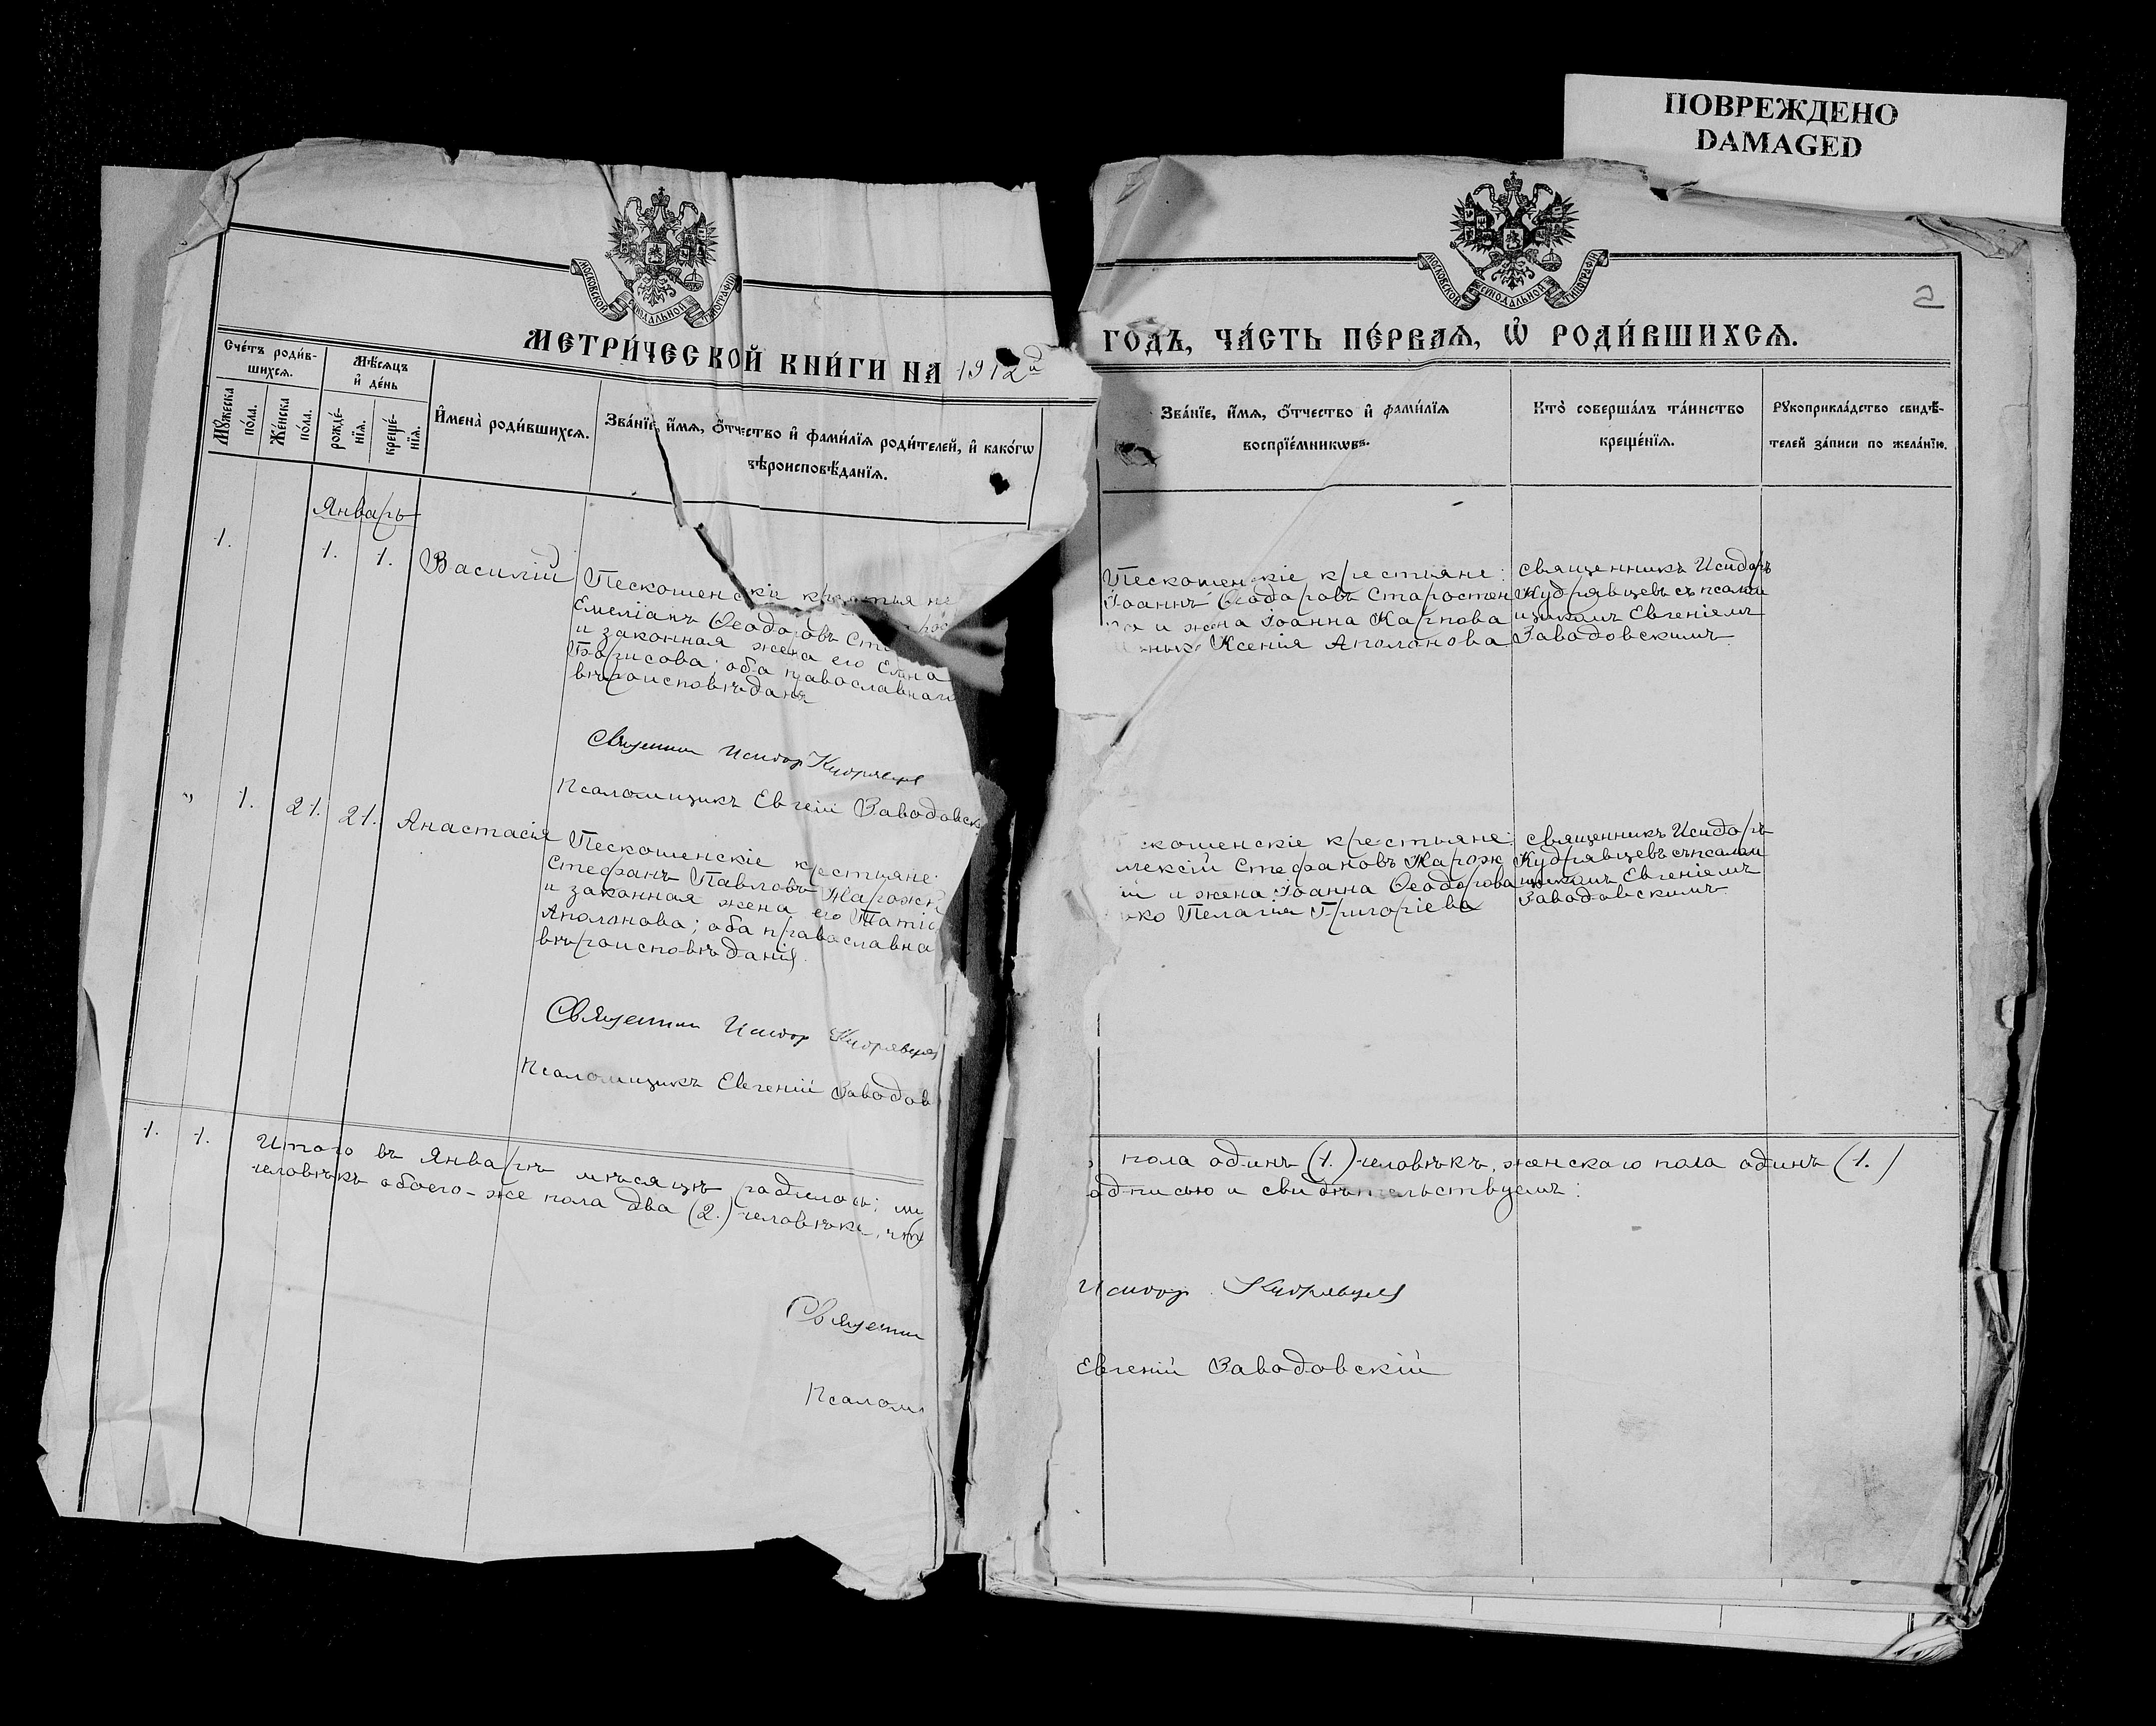 ПОВРЕЖДЕНО
DAMAGED
МОСКОВСКОЙ СѴНОДАЛЬНОЙ ТИПОГРАФІИ
МОСКОВСКОЙ СѴНОДАЛЬНОЙ ТИПОГРАФІИ
2
МЕТРИ́ЧЕСКОЙ КНИ́ГИ НА 1912й
ГОДЪ, ЧА́СТЬ ПЕ́РВАѦ, Ѽ РОДИ́ВШИХСѦ.
Сче́тъ роди́в-
шихсѧ.
Мꙋжеска
по́ла.
Же́нска
по́ла.
Мѣ́сѧцъ
и҆ де́нь
рожде́-
нїѧ.
креще́-
нїѧ.
И҆мена̀ роди́вшихсѧ.
Зва́нїе, и҆́мѧ, ѻ҆́тчество и҆ фами́лїѧ роди́телей, и҆ како́гѡ
вѣроисповѣ́данїѧ.
Зва́нїе, и҆́мѧ, ѻ҆́тчество и҆ фами́лїѧ
воспрїе́мникѡвъ.
Кто̀ соверша́лъ та́инство
креще́нїѧ.
Рꙋкоприкла́дство свидѣ́-
телей за́писи по жела́нїю.
Январь
1. 1. 1. Василій
Пескошенскіе крестьяне
Емеліанъ Ѳеодоровъ Ст
и законная жена его Елена
Борисова; оба православнаго
вѣроисповѣданія
Священник Исидор Кудрявцев
Псаломщикъ Евгеній Заводовск
Пескошенскіе крестьяне:
Іоаннъ Ѳеодоровъ Старостен
и жена Іоанна Карпова
Ксенія Аполонова
Священникъ Исидоръ
Кудрявцевъ съ псалом
щикомъ Евгеніемъ
Заводовскимъ
" 1. 21. 21. Анастасія
Пескошенскіе крестьяне:
Стефанъ Павловъ Нарожн
и законная жена его Татіа
Аполонова; оба православна
вѣроисповѣданія.
Священник Исидор Кудрявцев
Псаломщикъ Евгеній Заводов
скошенскіе крестьяне:
лексій Стефановъ Нарож
ій и жена Іоанна Ѳеодорова
ко Пелагія Григоріева
Священникъ Исидоръ
Кудрявцевъ съ псалом
щикомъ Евгеніемъ
Заводовскимъ
1. 1. Итого въ Январѣ мѣсяцѣ родилось: му
пола одинъ (1.) человѣкъ, женскаго пола одинъ (1.)
человѣкъ обоего-же пола два (2.) человѣка, что
одписью и свидѣтельствуемъ:
Священник
Исидор Кудрявцев
Псалом
Евгеній Заводовскій